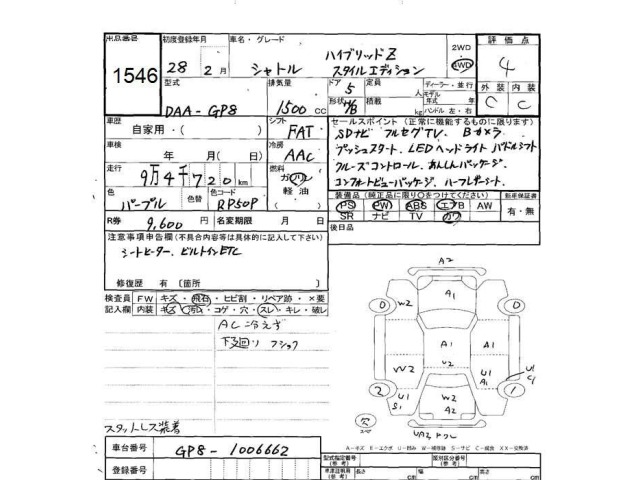 出品番号 1546
初度登録年月 28年 2月
車名・グレード シャトル ハイブリッドZ スタイルエディション
2WD 4WD
評価点 4
外装 C 内装 C
型式 DAA-GP8
排気量 1500 cc
ドア 5
形状 H/B
定員 人
積載 kg
ディーラー・並行
モデル 年式 年
ハンドル 左・右
車歴 自家用・( )
シフト FAT
車検 年 月( 日)
冷房 AAC
走行 9万4千720 km
燃料 ガソリン 軽油
色 パープル
色コード RP50P
R券 9,600 円
名変期限 月 日
セールスポイント (正常に機能するものに限ります)
SDナビ フルセグTV. Bカメラ
プッシュスタート. LEDヘッドライト パドルシフト
クルーズコントロール. あんしんパッケージ.
コンフォートビューパッケージ. ハーフレザーシート.
装備品 (純正品に限り○をつけてください) 新車保証書
PS PW ABS エアB AW 有・無
SR ナビ TV カワ
後日品
注意事項申告欄(不具合内容等は具体的に記入して下さい)
シートヒーター. ビルトインETC
修復歴 有 〔箇所 〕
検査員記入欄
FW キズ・飛石・ヒビ割・リペア跡・×要
内装 キズ・汚れ・コゲ・穴・スレ・キレ・破レ
AC冷えず
下廻り フショク
スタットレス装着
A2
0 W2 A1 0
A1 A1
W2 U2 U1 A1 U1 C1
2 U1 S1 W2 A2 1
穴 UA2 トワレ
車台番号 GP8-1006662
登録番号
型式指定番号 (参考)
類別区分番号 (参考)
車庫証明用 (参考) 長さ cm 幅 cm 高さ cm